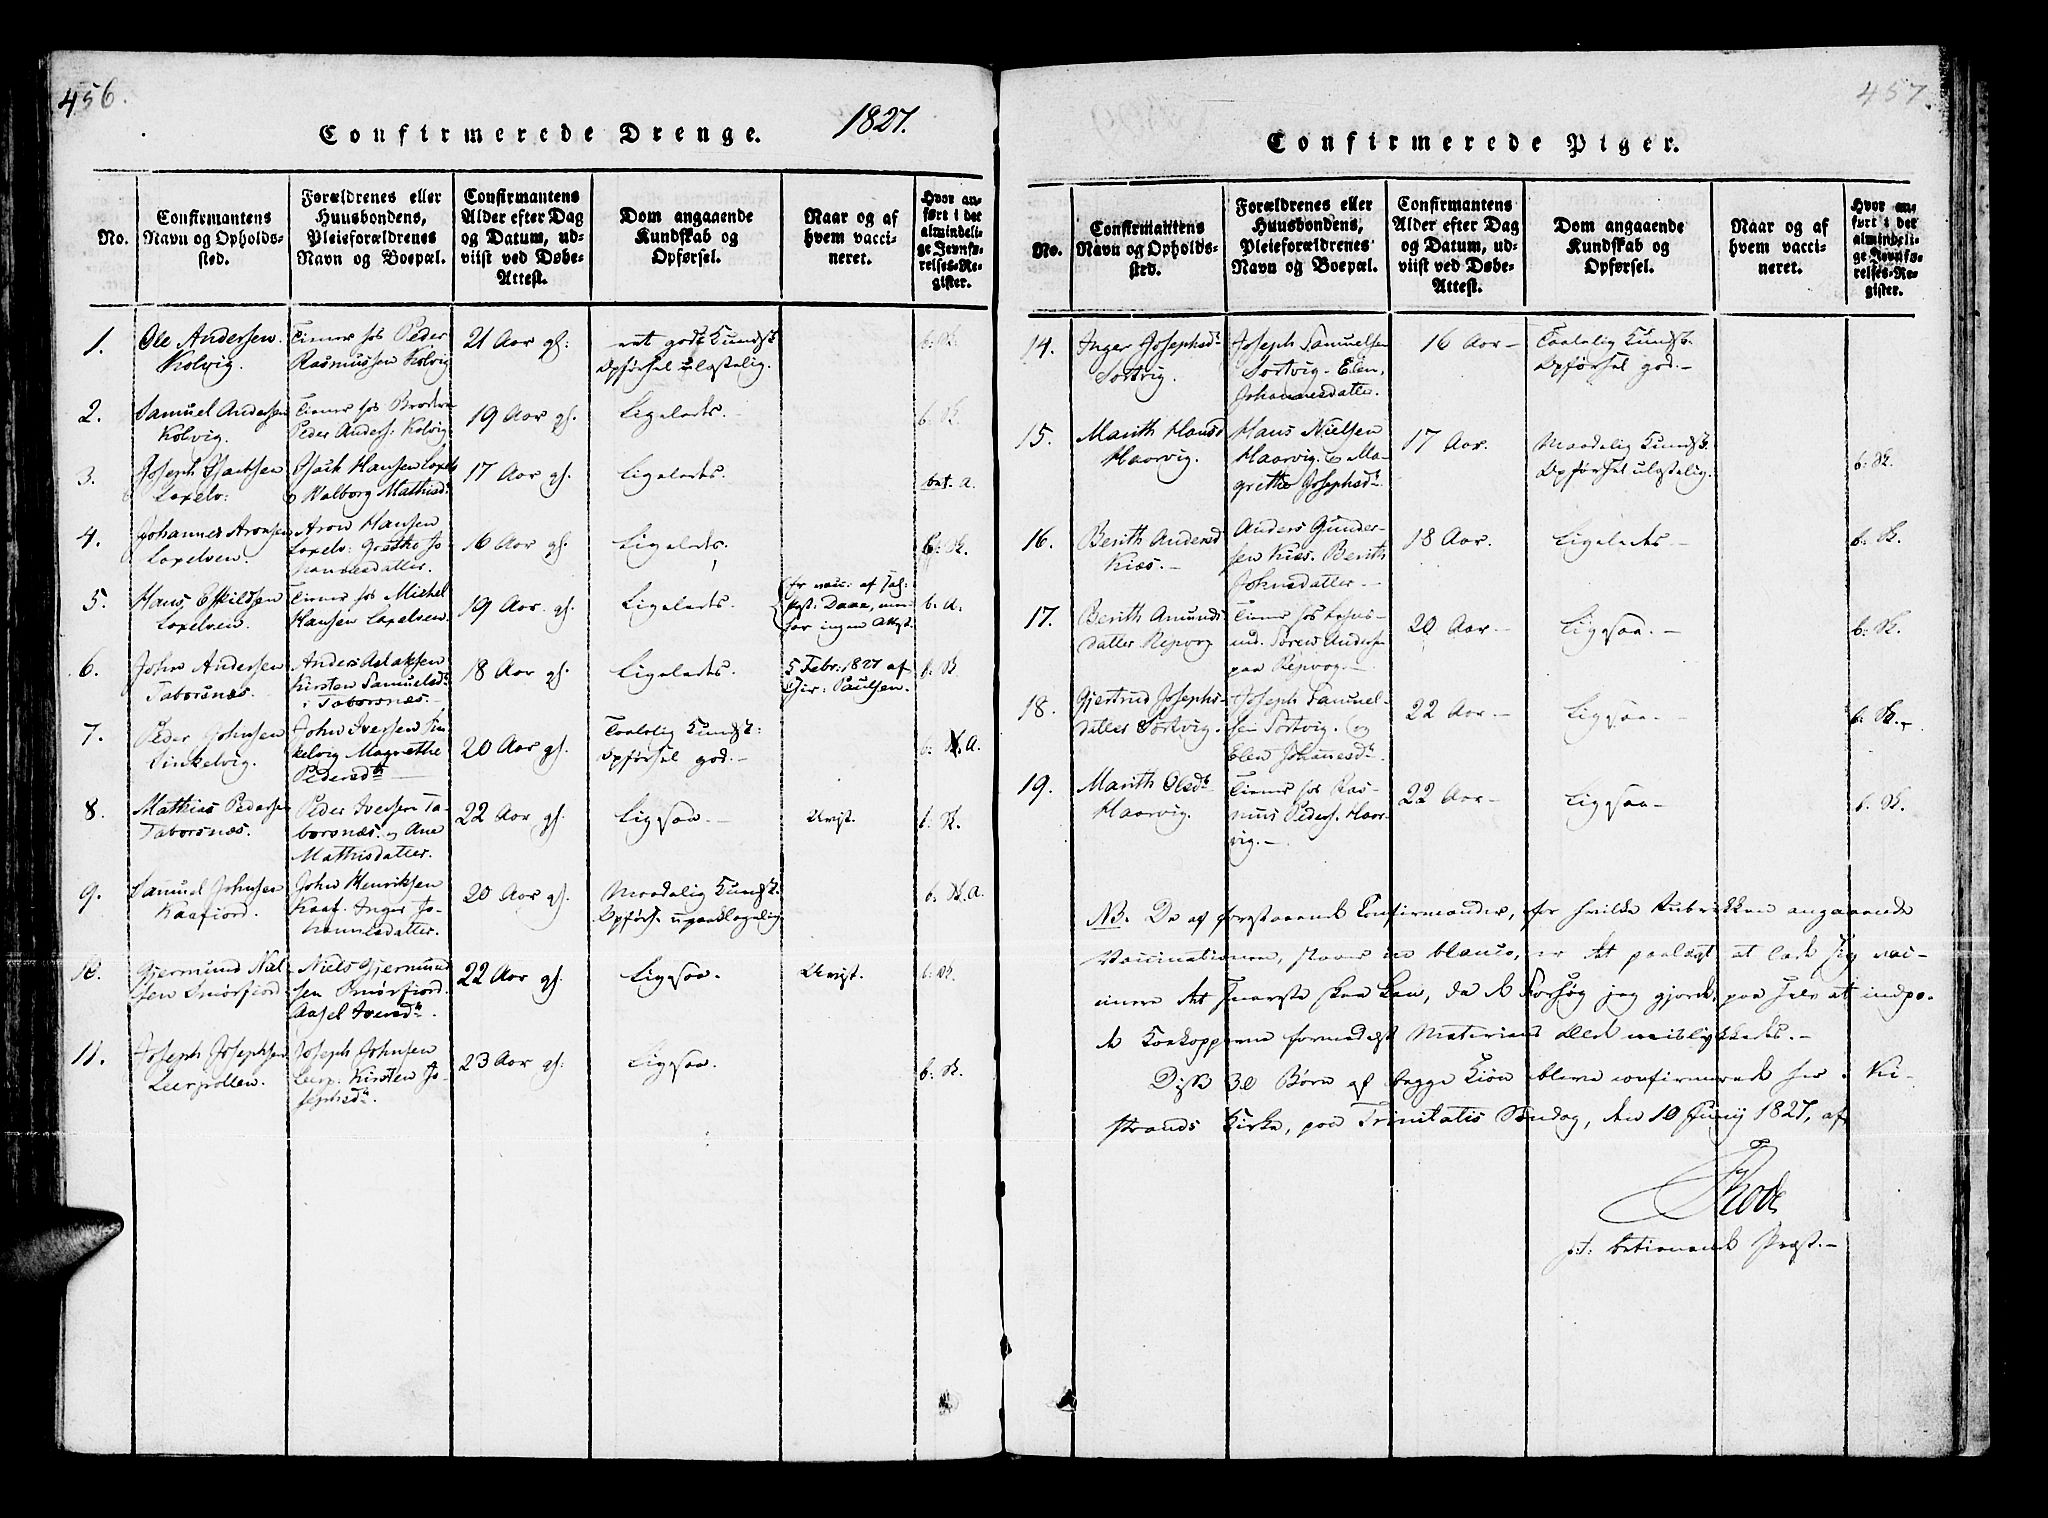 456.
Confirmerede Drenge. 1827.
No.
Confirmantens
Navn og Opholds-
sted.
Forældrenes eller
Huusbondens,
Pleieforældrenes
Navn og Boepæl.
Confirmantens
Alder efter Dag
og Datum, ud-
viist ved Døbe-
Attest.
Dom angaaende
Kundskab og
Opførsel.
Naar og af
hvem vacci-
neret.
Hvor an-
ført i det
almindeli-
ge Jevnfø-
relses-Re-
gister.
1.
Ole Andersen
Kolvig.
Tiener hos Peder
Rasmussen Kolvig
21 Aar gl:
ret godt Kundsk:
Opførsel ulastelig.
b: K.
2.
Samuel Andersen
Kolvig.
Tiener hos Broder
Peder Anders: Kolvig
19 Aar gl.
Ligeledes.-
b: K.
3.
Joseph Isachsen
Laxelv:
Isach Hansen Laxelv
og Valborg Mathisdr
17 Aar gl.
Ligeledes.
bet. A.
4.
Johannes Aronsen
Laxelven.
Aron Hansen
Laxelv: Grethe Jo-
hannesdatter.
16 Aar gl.
Ligeledes.
b: K.
5.
Hans Eskildsen
Laxelven.
Tiener hos Michel
Hansen Laxelven.
19 Aar gl.
Ligeledes.
Er vacc: af
Daae, men
har ingen Attest.
b: A.
6.
John Andersen
Taborsnæs.
Anders Aslaksen
Kirsten Samuelsdr
i Taborsnæs.-
18 Aar gl.
Ligeledes.
5 Febr: 1827 af
Chir: Paulsen.
b: K
7.
Peder Johnsen
Vinkelvig.
John Iversen Vin-
kelvig Magrethe
Pedersdtr
20 Aar gl.
Taalelig Kundsk:
Opførsel god.-
b: A.
8.
Mathias Pedersen
Taborsnæs.
Peder Iversen Ta-
borsnæs. og Ane
Mathisdatter.
22 Aar gl.
Ligesaa.-
Uvist.
b: K.
9.
Samuel Johnsen
Kaafiord.
John Henriksen
Kaaf. Inger Jo-
hannesdatter.
20 Aar gl.
Maadelig Kundsk.
Opførs: upaaklagelig
b: A.
10.
Gjermund Niel-
sen Smørfiord
Niels Gjermund-
sen Smørfiord.
Aasel Iversdr.
22 Aar gl.
Ligesaa.
Uvist.
b: K.
11.
Joseph Josephsen
Leerpollen.
Joseph Johnsen
Leerp: Kirsten Jo-
sephsdr.
23 Aar gl:
Ligesaa.
b: K.
457.
Confirmerede Piger.
No.
Confirmantens
Navn og Opholds-
sted.
Forældrenes eller
Huusbondens,
Pleieforældrenes
Navn og Boepæl.
Confirmantens
Alder efter Dag
og Datum, ud-
viist ved Døbe-
Attest.
Dom angaaende
Kundskab og
Opførsel.
Naar og af
hvem vacci-
neret.
Hvor an-
ført i det
almindeli-
ge Jevnfø-
relses-Re-
gister.
14.
Inger Josephsdr
Sortvig.
Joseph Samuelsen
Sortvig. Elen
Johannesdatter.
16 Aar-
Taalelig Kundsk:
Opførsel god.-
15.
Marith Hansdr
Haarvig.
Hans Nielsen
Haarvig. og Ma-
grethe Josephsdr.
17 Aar.
Maadelig Kundsk:
Opførsel ulastelig.
b: K.
16.
Berith Andersd
Kiæs.-
Anders Gunder-
sen Kiæs. Berith
Johnsdatter.-
18 Aar.
Ligeledes-
b: K.
17.
Berith Amunds-
datter Repvog
Tiener hos
Søren Andersen
paa Repvog.-
20 Aar-
Ligesaa.-
b: K.
18.
Gjertrud Josephs-
datter Sortvig.
Joseph Samuel-
sen Sortvig. og
Elen Johanesdr.
22 Aar-
Ligesaa.-
b: K.
19.
Marith Olsdr
Haarvig.
Tiener hos Ras-
mus Peders. Haar-
vig.-
22 Aar-
Ligesaa-
b: K.
NB. De af forestaaende Confirmander, for hvilke Rubrikken angaaende
Vaccinationen, staaer in blanco, er det paalagt at lade sig vac-
cinere det snareste skee kan, da de Forsøg jeg gjorde paa selv at indpo-
de Koekopperne formedelst Materiens Ælde mislykkedes.-
Disse 30 Børn af begge Kiøn bleve confirmerede her i Ki-
strands Kirke, paa Trinitatis Søndag, den 10 Junij 1827, af
Rode
p.t. betienende Præst.-